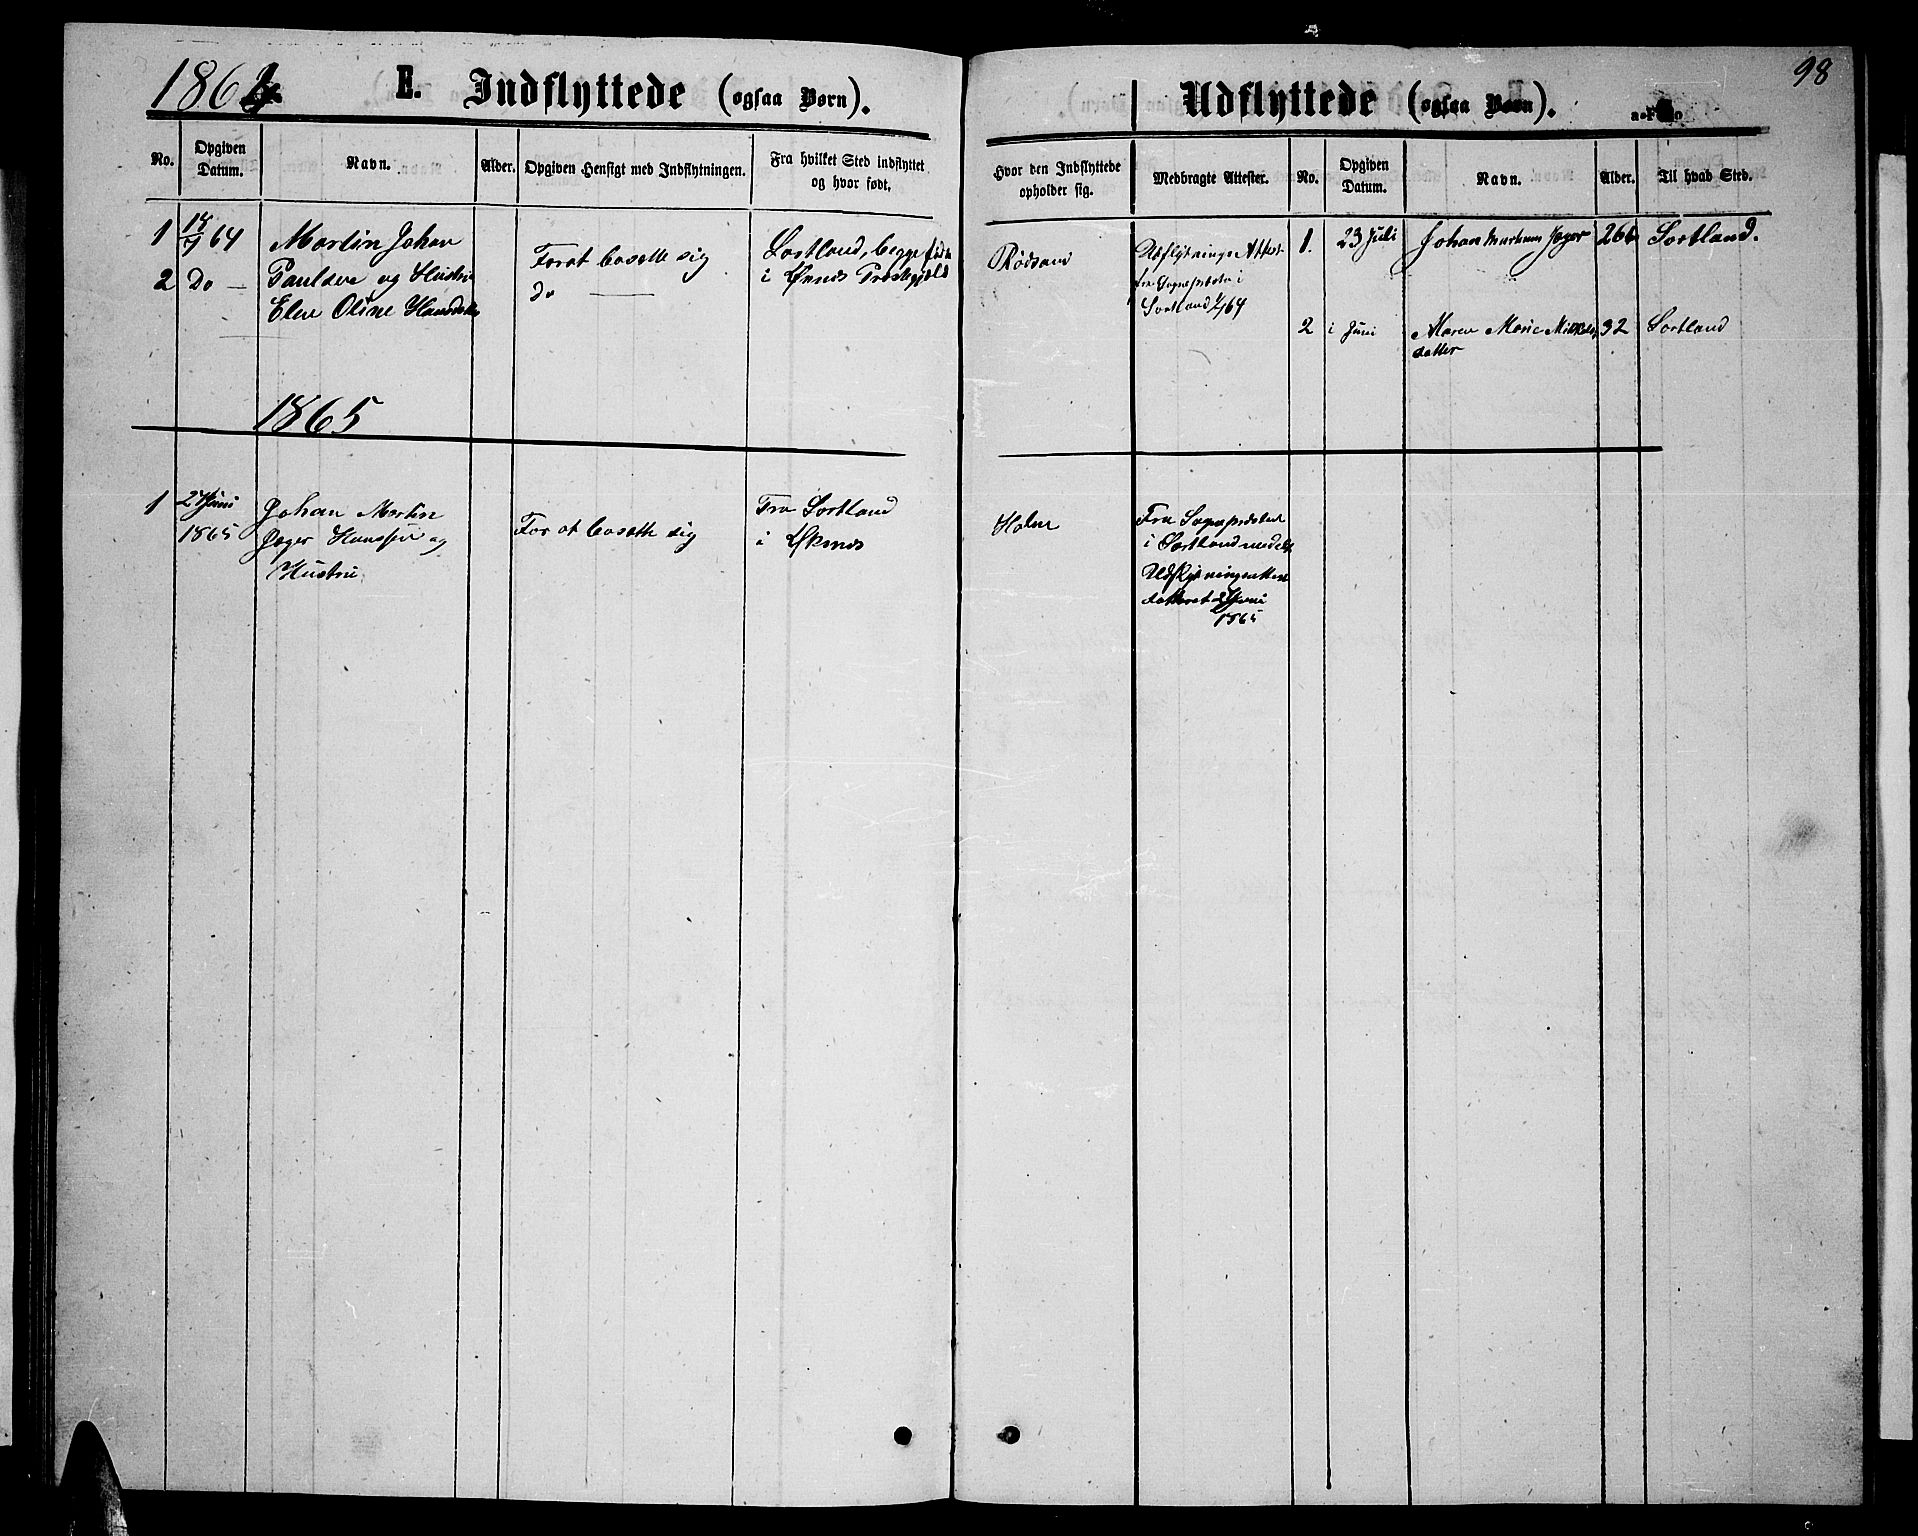 1864. E. Indflyttede (ogsaa Børn).
No. Opgiven Datum. Navn. Alder. Opgiven Hensigt med Indflytningen. Fra hvilket Sted indflyttet og hvor født.
1 18/7 64 Martin Johan Forat bosætte sig Sortland, begge fødte
2 Do — Paulsen og Hustru do — i Øxnes Præstegjæld
Elen Oline Hansdatter
1865
1 27 Juni Johan Martin For at bosætte sig Fra Sortland
1865 Jæger Hanssen og i Øksnes
Hustru
98
Udflyttede (ogsaa Børn).
Hvor den Indflyttede opholder sig. Medbragte Attester. No. Opgiven Datum. Navn. Alder. Til hvad Sted.
Rødsand Udflytnings Attest 1. 23 Juli Johan Martinus Jæger 26 Sortland.
fra Sognepræsten i
Sortland 64
2 i Juni Maren Marie Mikkels 32 Sortland
datter
Holm Fra Sognepræsten
i Sortland meddelt
Udflytningsattest
datteret Juni
1865